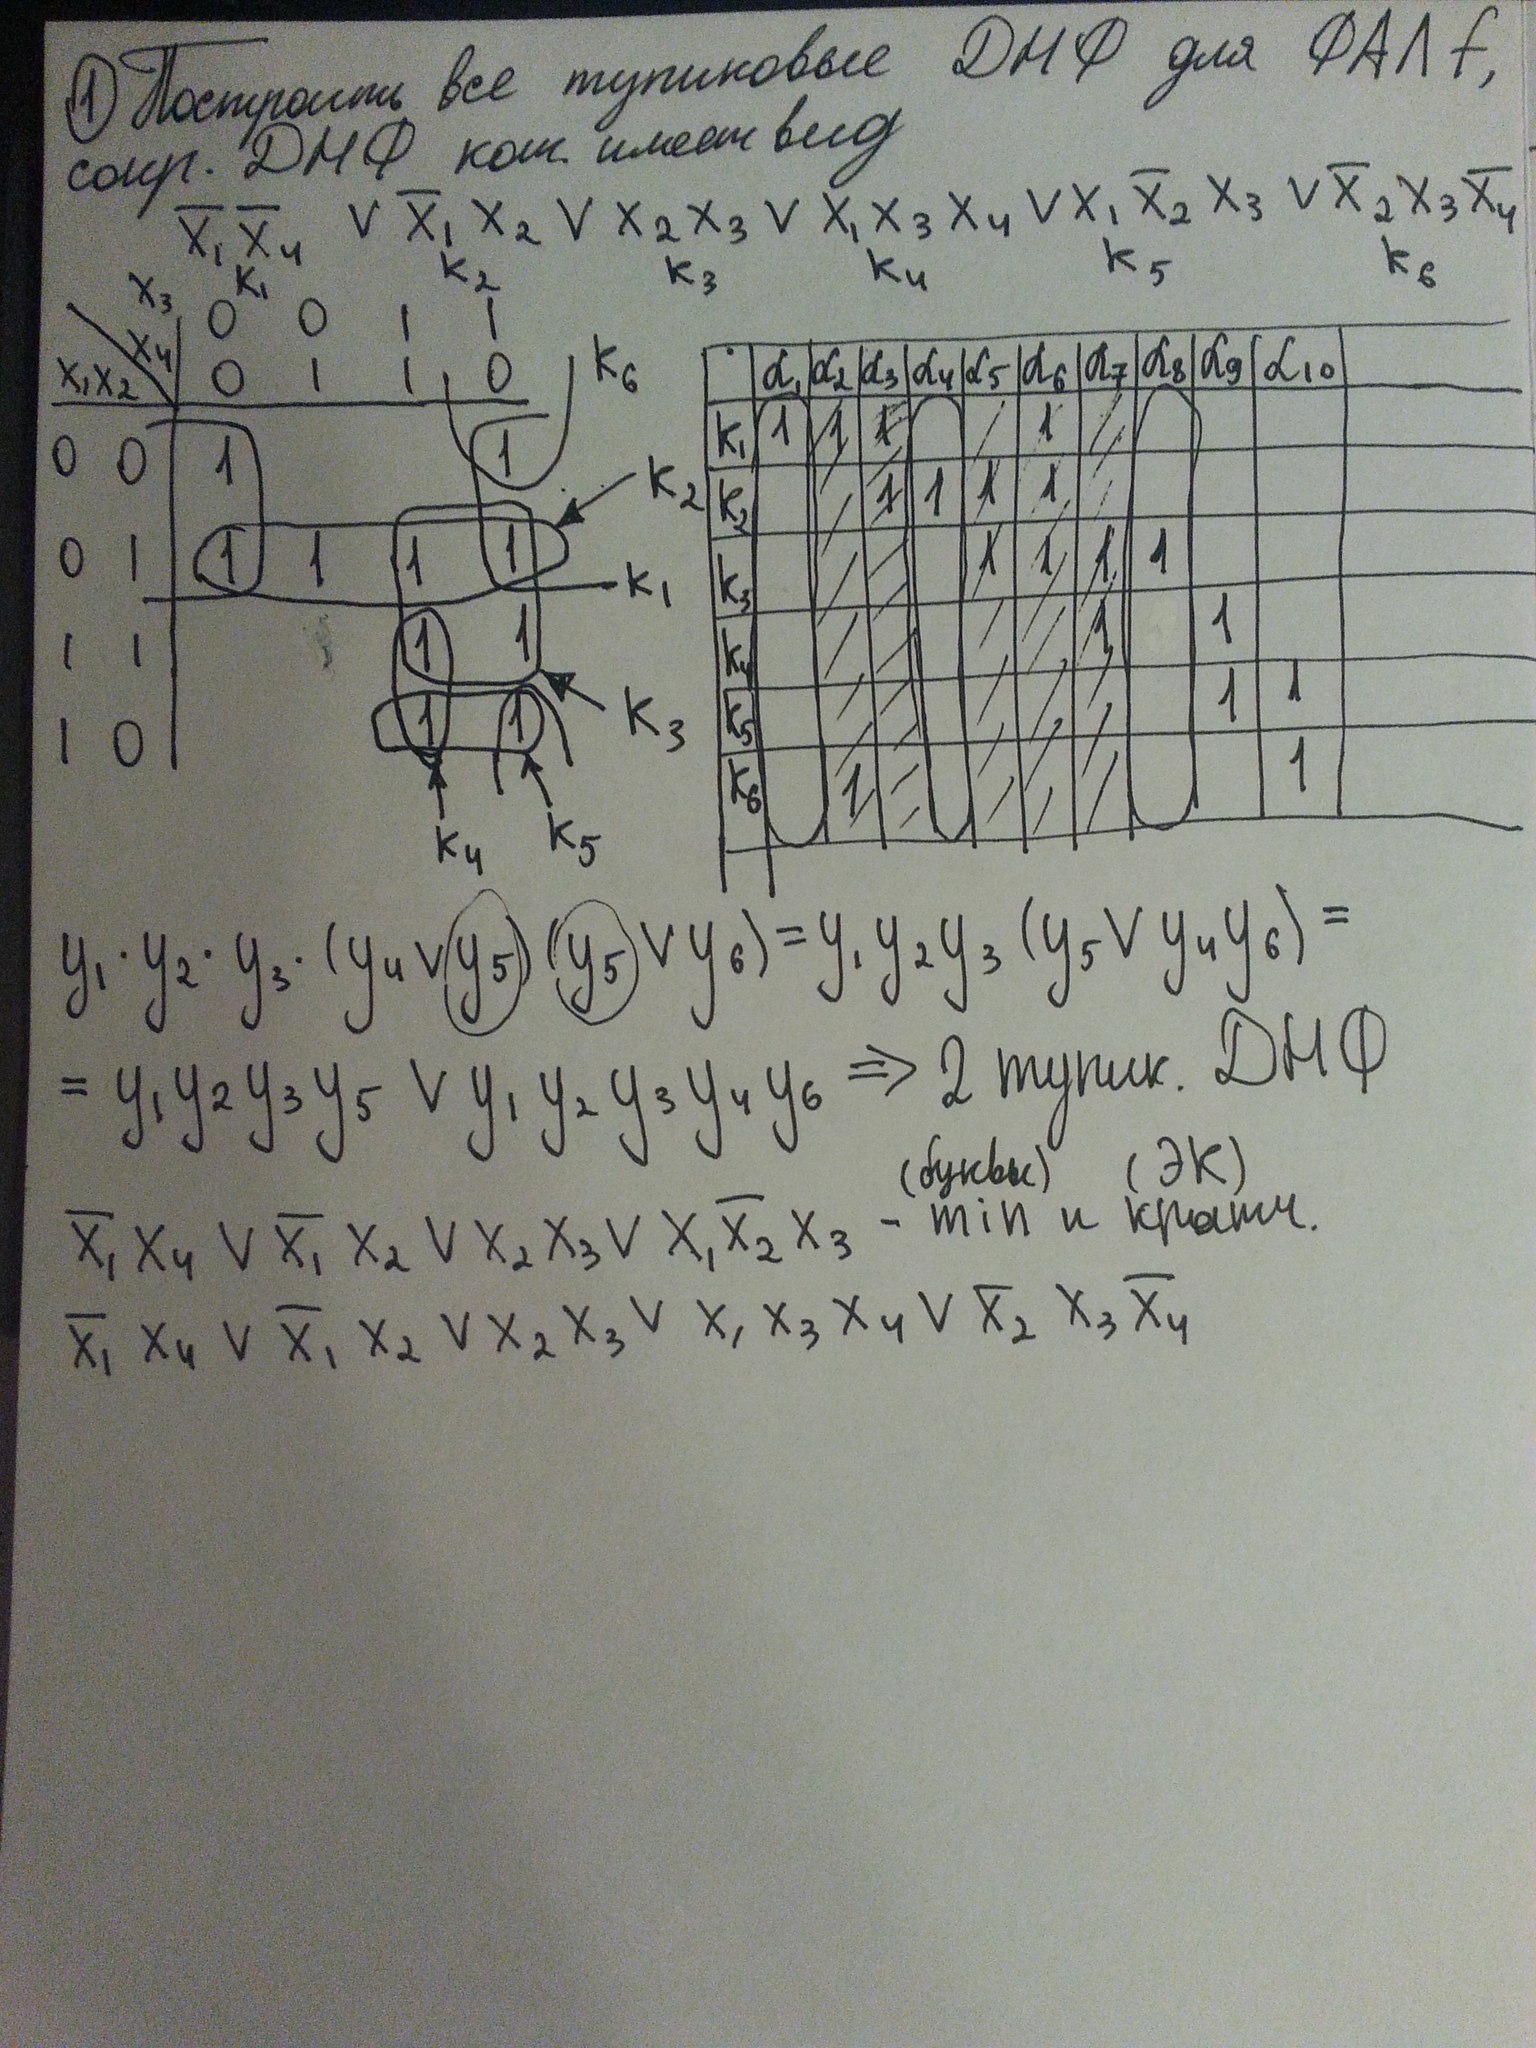 ① Построить все тупиковые ДНФ для ФАЛ f,
сокр. ДНФ кот. имеет вид
x̅₁x̅₄ ∨ x̅₁x₂ ∨ x₂x₃ ∨ x₁x₃x₄ ∨ x₁x̅₂x₃ ∨ x̅₂x₃x̅₄
K₁ K₂ K₃ K₄ K₅ K₆
x₃ 0 0 1 1
x₄ 0 1 1 0
x₁x₂
K₆
0 0 1 1
K₂
0 1 1 1 1 1
K₁
1 1 1 1
K₃
1 0 1 1
K₄ K₅
α₁ α₂ α₃ α₄ α₅ α₆ α₇ α₈ α₉ α₁₀
K₁ 1 1 1 1
K₂ 1 1 1 1
K₃ 1 1 1 1
K₄ 1 1
K₅ 1 1
K₆ 1 1
y₁·y₂·y₃·(y₄∨y₅)(y₅∨y₆)=y₁y₂y₃(y₅∨y₄y₆)=
=y₁y₂y₃y₅ ∨ y₁y₂y₃y₄y₆ ⇒ 2 тупик. ДНФ
(буквы) (ЭК)
x̅₁x₄ ∨ x̅₁x₂ ∨ x₂x₃ ∨ x₁x̅₂x₃ - min и кратч.
x̅₁x₄ ∨ x̅₁x₂ ∨ x₂x₃ ∨ x₁x₃x₄ ∨ x̅₂x₃x̅₄